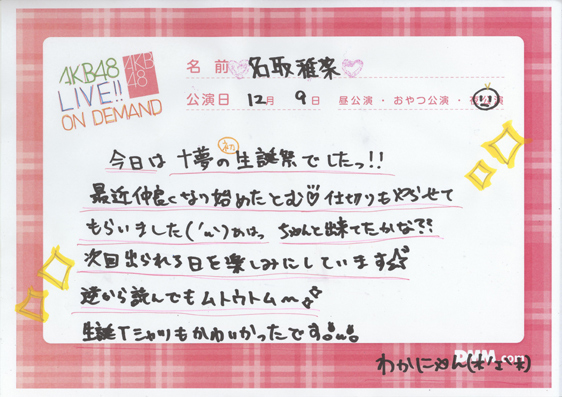 AKB48
LIVE!!
ON DEMAND
AKB
48
名 前 名取稚菜
公演日 12月 9日 昼公演・おやつ公演・夜公演
今日は十夢の生誕祭でしたっ!!
最近仲良くなり始めたとむ♡仕切りもやらせて
もらいました('ω')あはっ ちゃんと出来てたかな??
次回出られる日を楽しみにしています☆
逆から読んでもムトウトム〜
生誕Tシャツもかわいかったです
わかにゃん(*'ω'*)
DMM.com